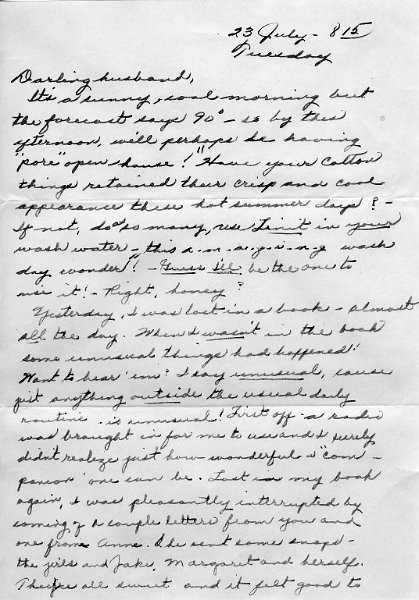 23 July - 8 15
Tuesday
Darling husband,
It's a sunny, cool morning but
the forecast says 90° - so by this
afternoon, will perhaps be having
"pore" open house! "Have your cotton
things retained their crisp and cool
appearance these hot summer days? -
If not, do as so many, use Linit in your
wash water - this a-m-a-z-i-n-g wash
day wonder!" - Guess I'll be the one to
use it! - Right, honey?
Yesterday, I was lost in a book - almost
all the day. When I wasn't in the book
some unusual things had happened!
Want to hear 'em? I say unusual, cause
jist anything outside the usual daily
routine is unusual! First off - a radio
was brought in for me to use and I surely
didn't realize just how wonderful a "com-
panion" one can be. Lost in my book
again, I was pleasantly interrupted by
coming of a couple letters from you and
one from Anne. She sent some snaps -
the girls and Jake, Margaret and herself.
They're all sweet and it felt good to